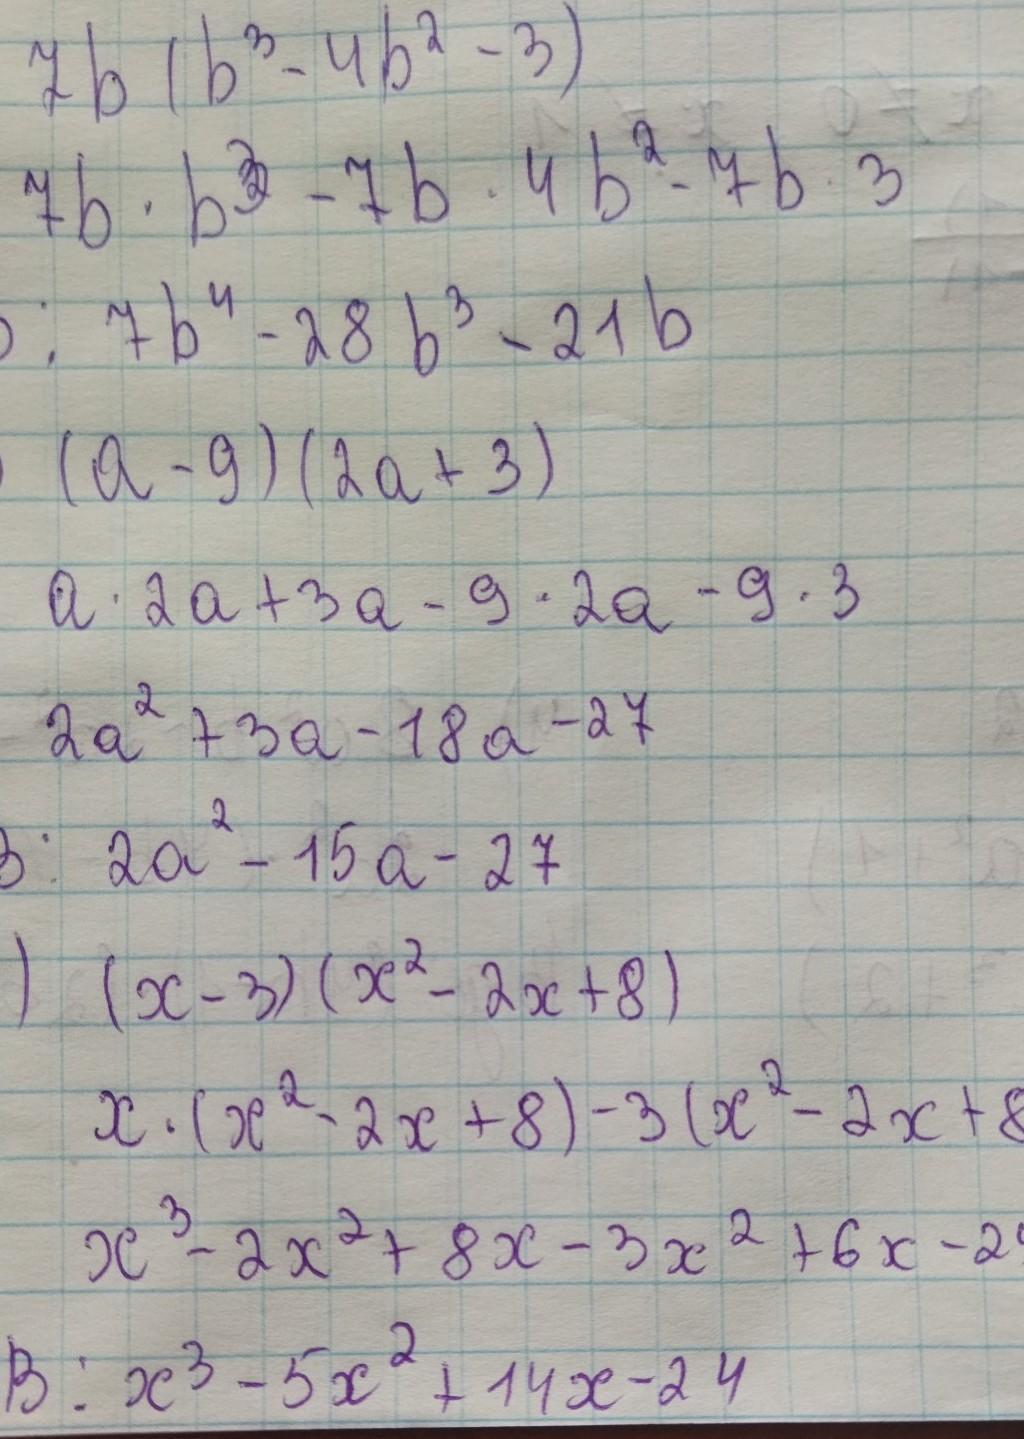 7b (b³ - 4b² - 3)
7b · b³ - 7b · 4b² - 7b · 3
: 7b⁴ - 28b³ - 21b
) (a - 9)(2a + 3)
a · 2a + 3a - 9 · 2a - 9 · 3
2a² + 3a - 18a - 27
В: 2a² - 15a - 27
) (x - 3)(x² - 2x + 8)
x · (x² - 2x + 8) - 3(x² - 2x + 8
x³ - 2x² + 8x - 3x² + 6x - 24
В: x³ - 5x² + 14x - 24